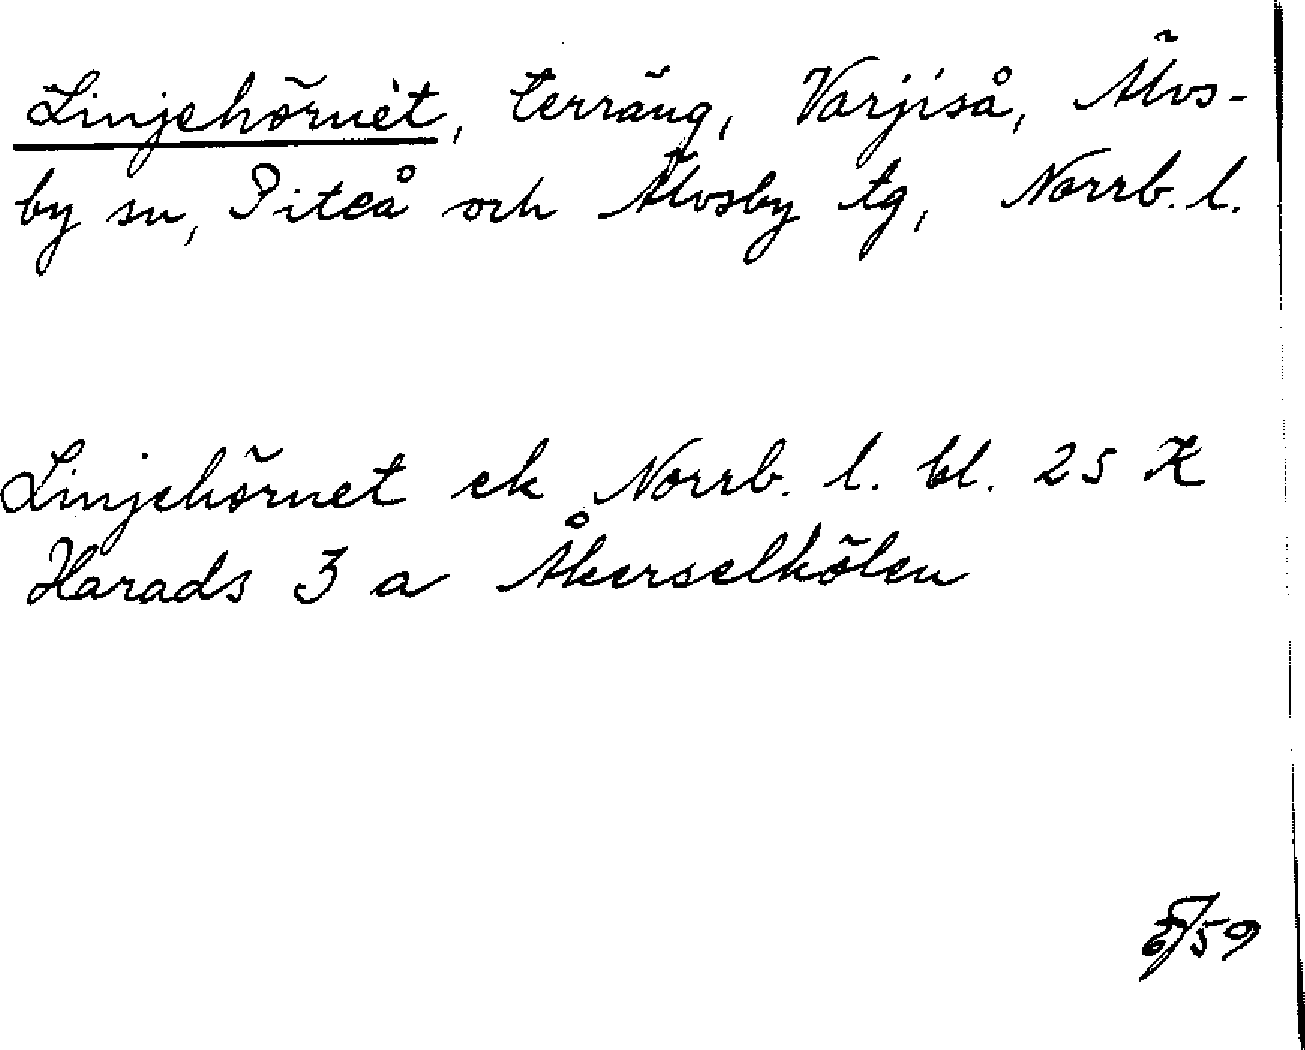 Linjehörnet, terräng, Varjiså, Älvs-
by sn, Piteå och Älvsby tg, Norrb. l.
Linjehörnet ek Norrb. l. bl. 25 K
Harads 3 a Åkerselkölen
/59